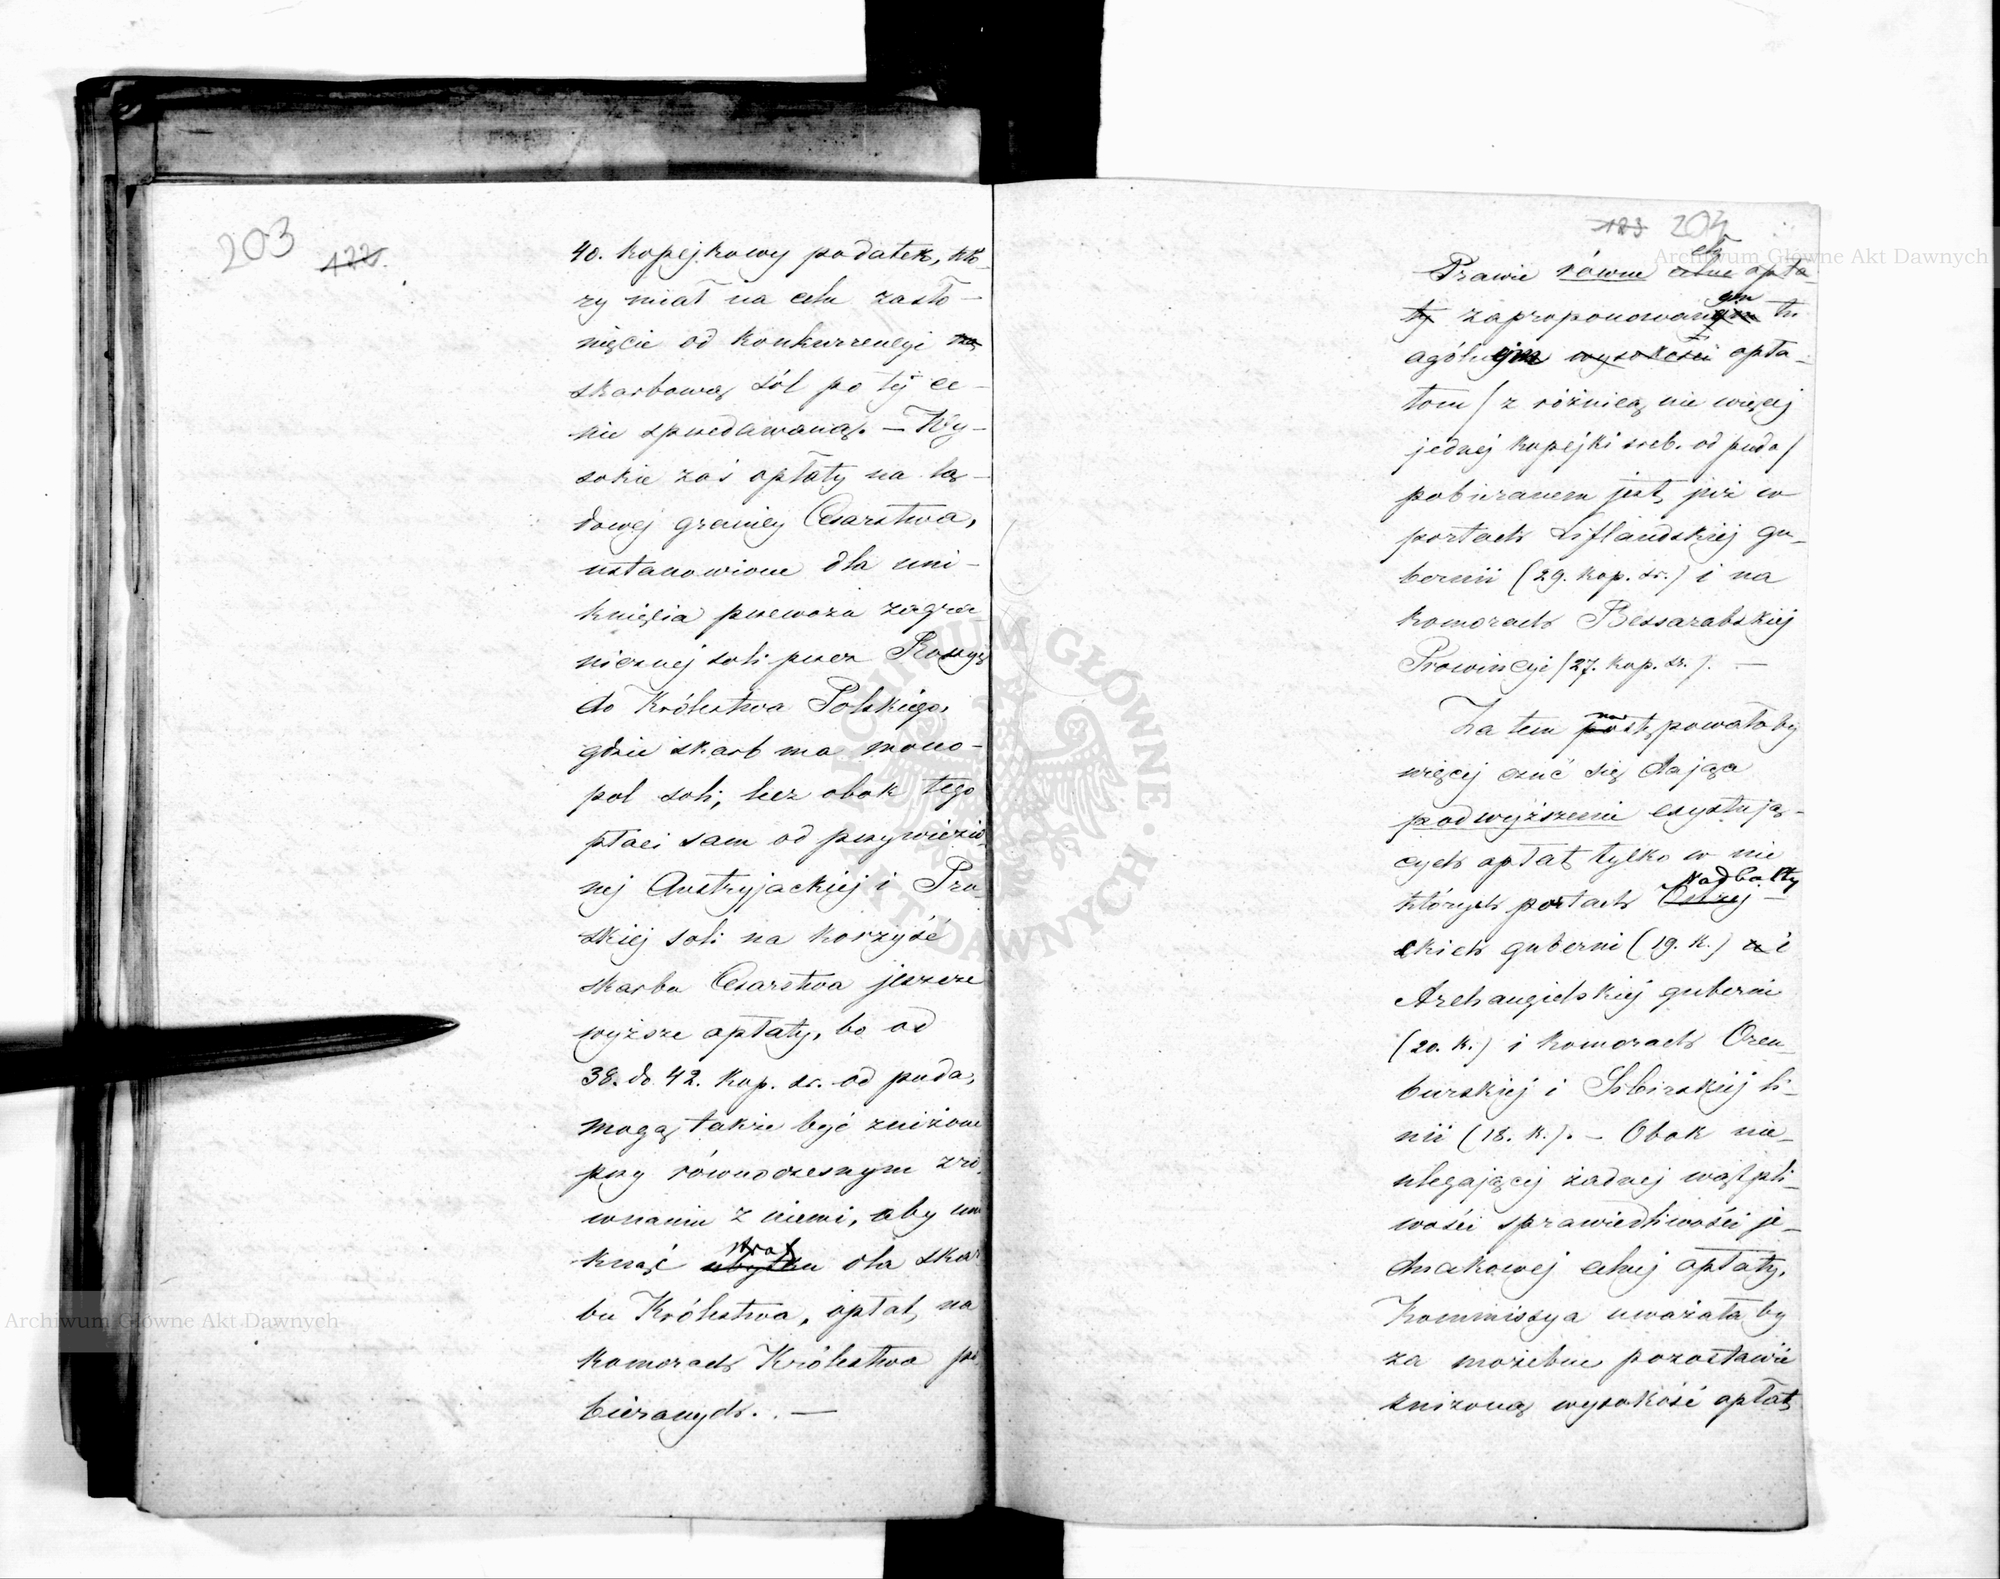 203
122.
40. kopejkowy podatek, któ-
ry miał na celu zasło-
nięcie od konkurrencyi
skarbową sól po téj ce-
nie sprzedawaną. — Wy-
sokie zaś opłaty na lą-
dowej granicy Cesarstwa,
ustanowione dla uni-
knięcia przewozu zagra
nicznej soli przez Rossyą
do Królestwa Polskiego,
gdzie skarb ma mono-
pol soli, lecz obok tego
płaci sam od przywiezio-
nej Austryjackiej i Pru
skiej soli na korzyść
skarbu Cesarstwa jeszcze
wyższe opłaty, bo od
38. do 42. kop. sr. od puda,
mogą także być zniżone
przy równoczesnym zró-
wnaniu z niemi, aby uni
knąć strat ubytku dla skar
bu Królestwa, opłat na
komorach Królestwa po
bieranych. —
123 204
Prawie równe celne opła-
ty zaproponowanym tu
ogólnym wysokości opła-
tom / z różnicą nie więcej
jednéj kopejki sreb. od puda /
pobieranem jest już w
portach Liflandskiéj gu-
bernii (29. kop. sr.) i na
komorach Bessarabskiej
Prowincyi (27. kop. sr.). —
Za tem następowałoby
więcej czuć się dająca
podwyższenie exystują-
cych opłat tylko w nie
których portach Nadbałty
ckich guberni (19. k.) i
Archangielskiej guberni
(20. k.) i komorach Oren-
burskiej i Sibirskiej li-
nii (18. k.). — Obok nie-
ulegającej żadnej wątpli-
wości sprawiedliwości je-
dnakowej celnej opłaty,
Kommissya uważała by
za możebne pozostawić
zniżoną wysokość opłat
Archiwum Główne Akt Dawnych
Archiwum Główne Akt Dawnych
ARCHIWUM GŁÓWNE AKT DAWNYCH